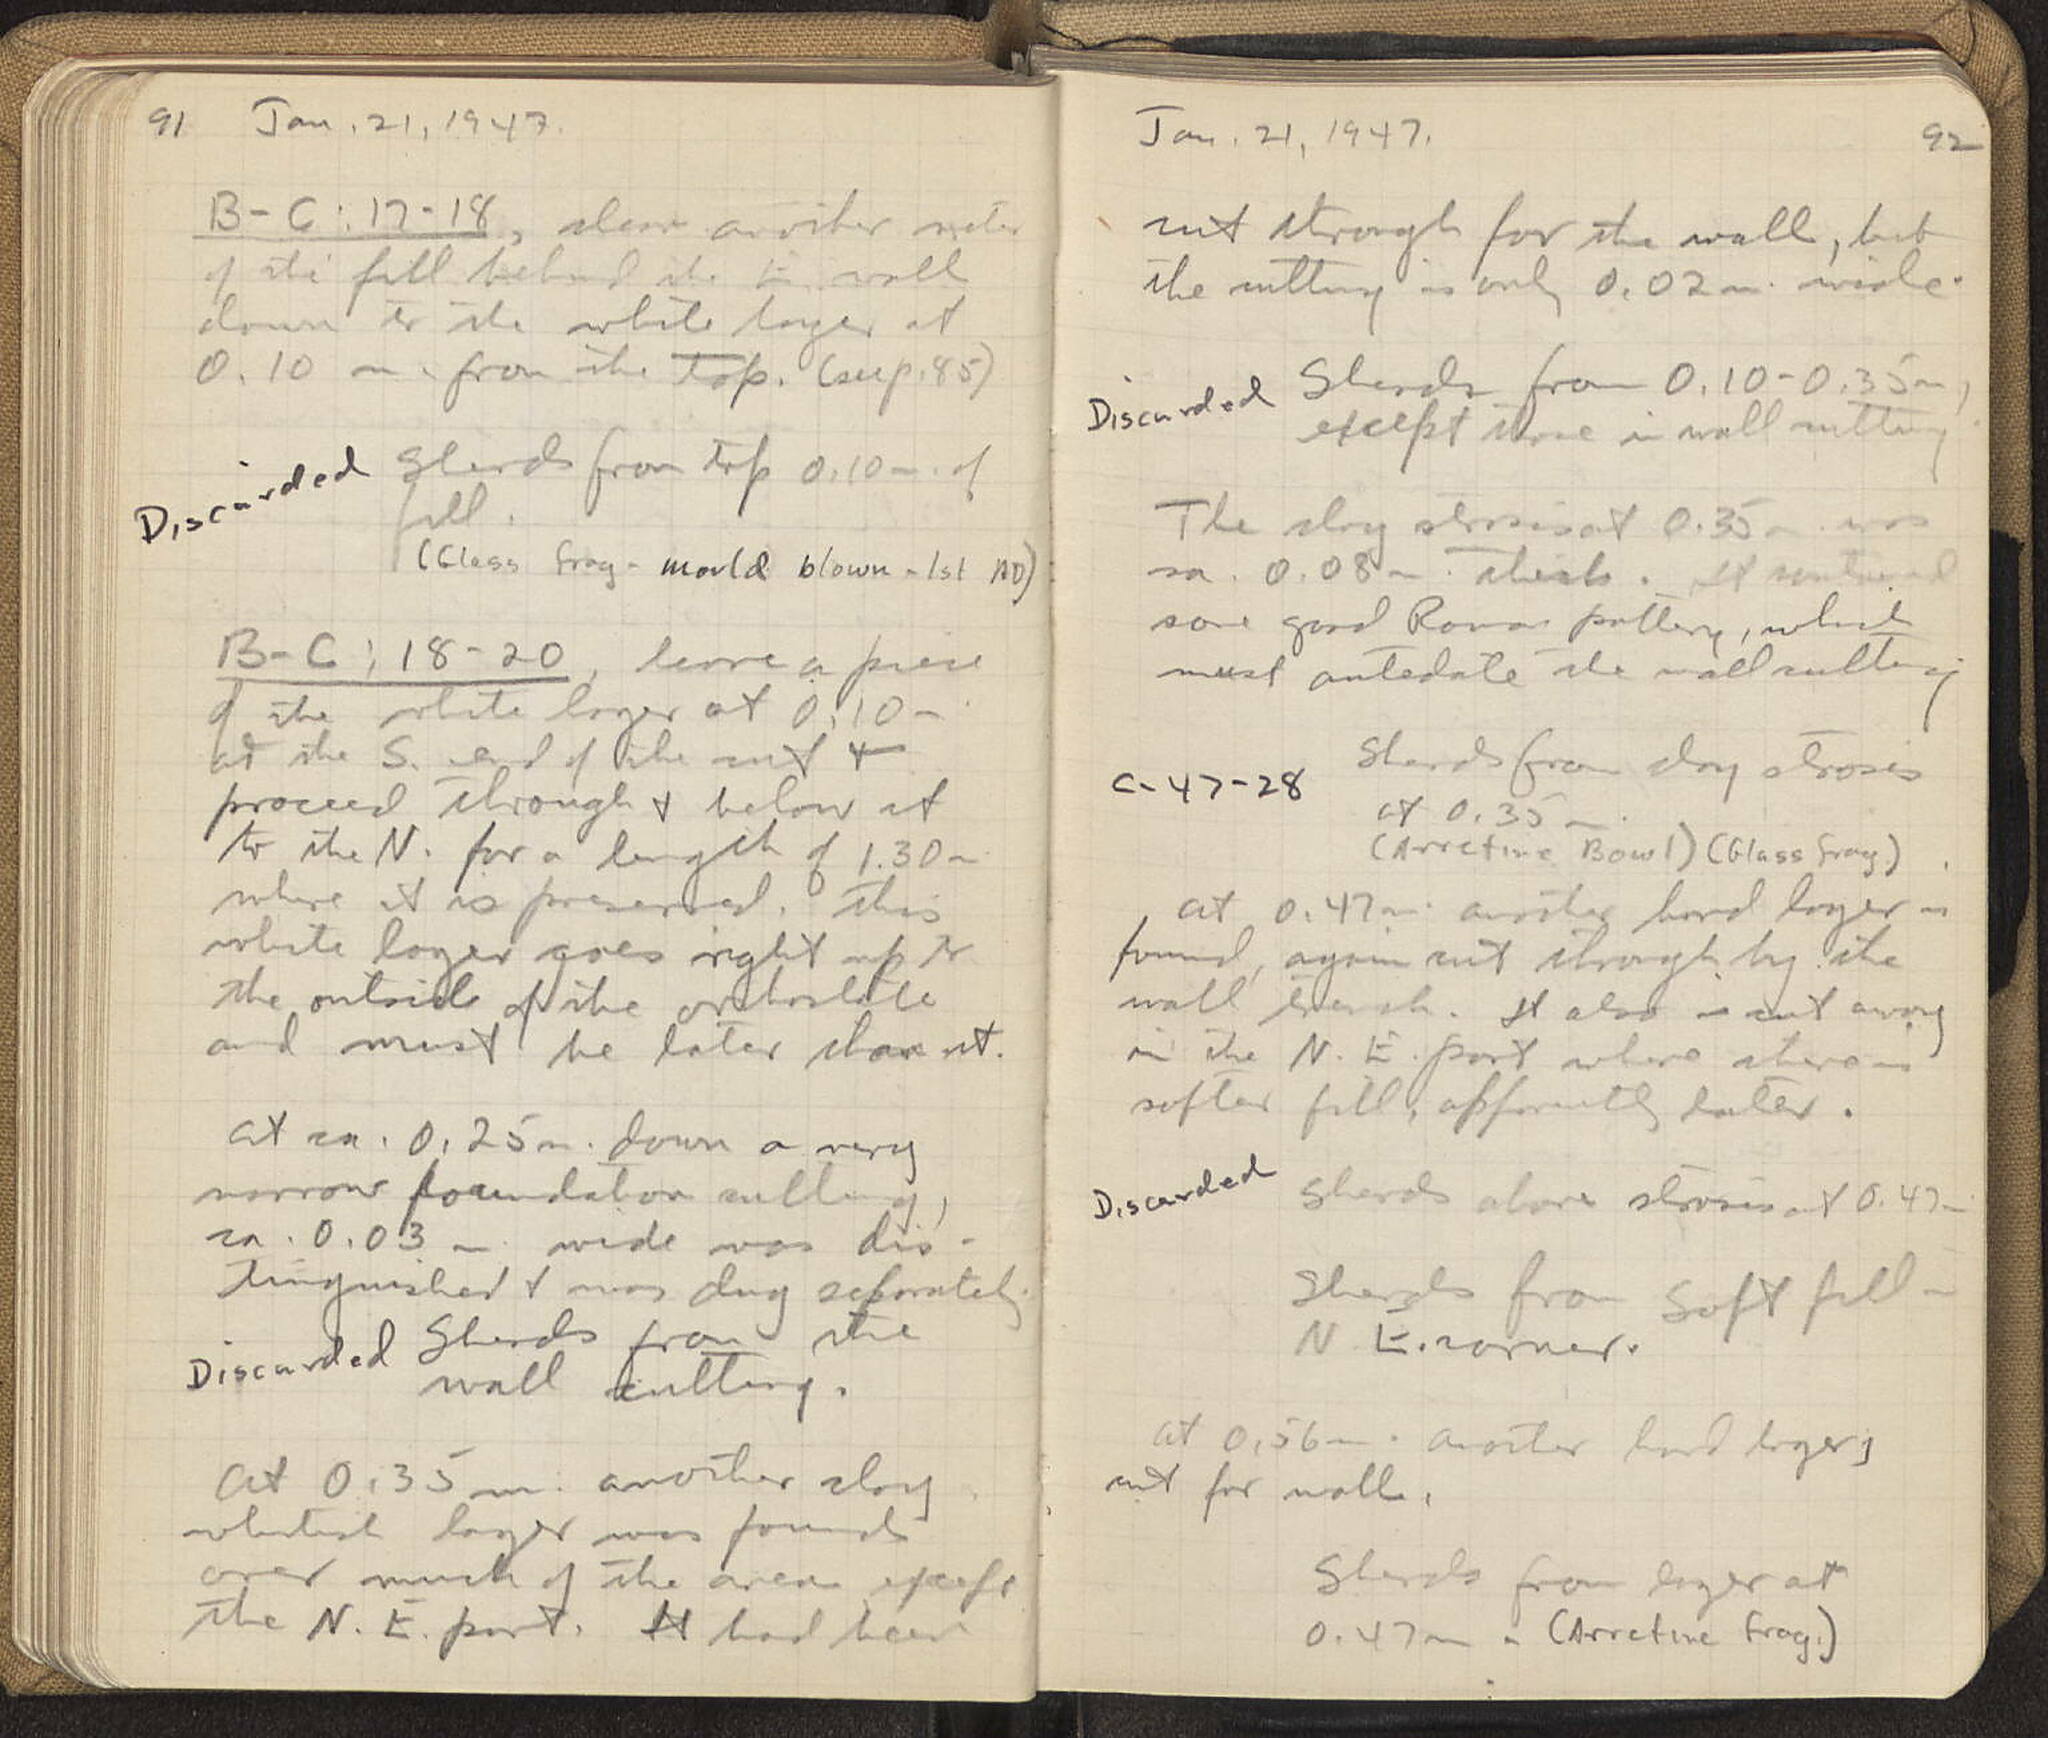 91 Jan. 21, 1947.
B-C: 17-18, clear another meter
of the fill behind the E. wall
down to the white layer at
0.10 m. from the top. (see p. 85)
Discarded Sherds from top 0.10 m. of
fill.
(Glass frag - mould blown - 1st AD)
B-C: 18-20, leave a piece
of the white layer at 0.10 m.
at the S. end of the cut +
proceed through + below it
to the N. for a length of 1.30 m
where it is preserved. This
white layer goes right up to
the outside of the orthostate
and must be later than it.
At ca. 0.25 m. down a very
narrow foundation cutting,
ca. 0.03 m. wide was dis-
tinguished + was dug separately.
Discarded Sherds from the
wall cutting.
At 0.35 m. another clay
whitish layer was found
over much of the area except
the N.E. part. It had been
Jan. 21, 1947. 92
cut through for the wall, but
the cutting is only 0.02 m. wide.
Discarded Sherds from 0.10-0.35 m,
except those in wall cutting.
The clay strosis at 0.35 m. was
ca. 0.08 m. thick. It contained
some good Roman pottery, which
must antedate the wall cutting
C-47-28 Sherds from clay strosis
at 0.35 m.
(Arretine Bowl) (Glass frag.)
At 0.47 m. another hard layer is
found, again cut through by the
wall trench. It also is cut away
in the N.E. part where there is
softer fill, apparently later.
Discarded Sherds above strosis at 0.47 m.
Sherds from soft fill in
N.E. corner.
At 0.56 m. another hard layer,
cut for wall.
Sherds from layer at
0.47 m - (Arretine frag.)